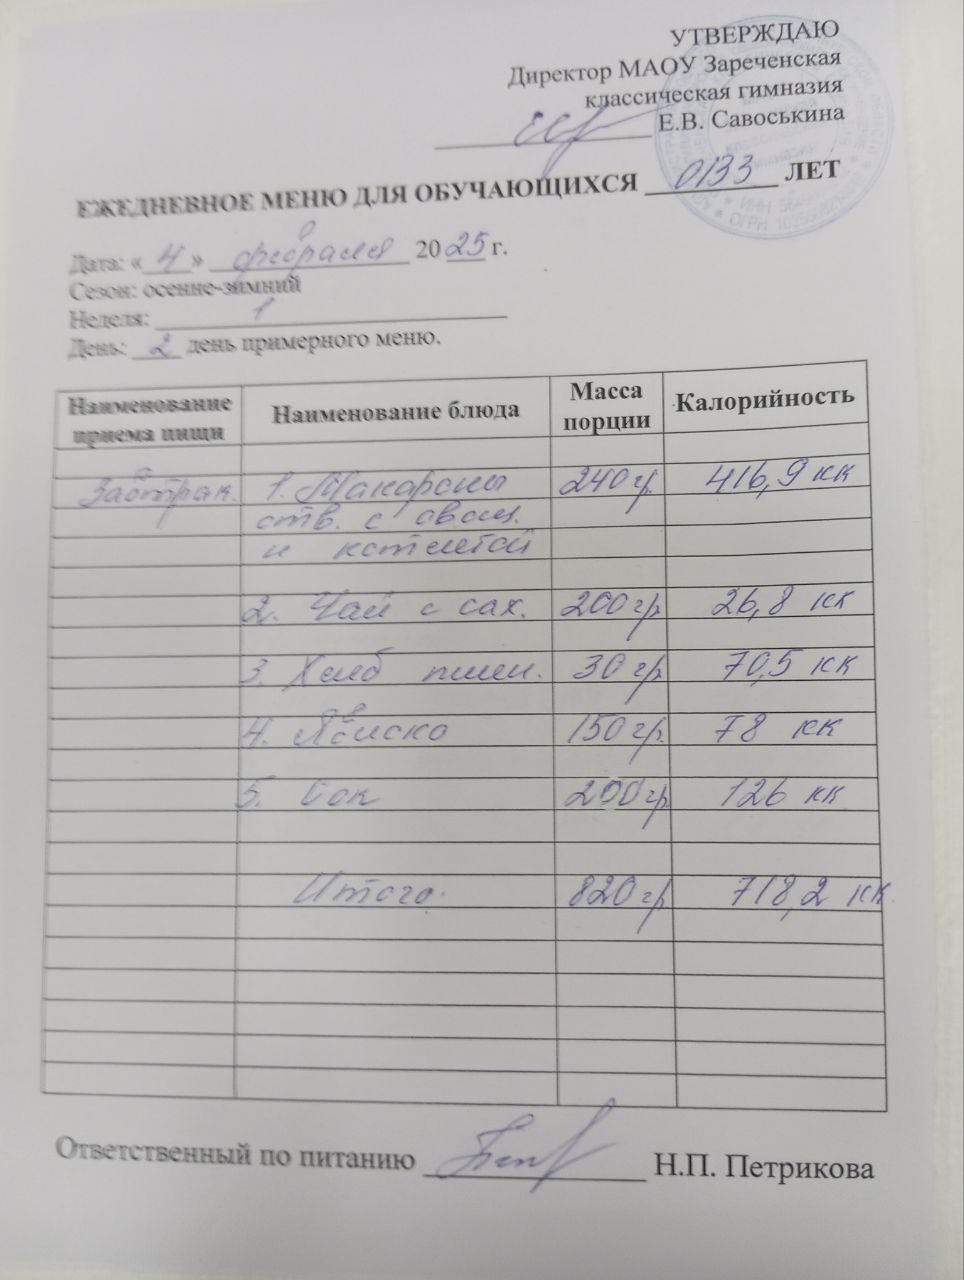 УТВЕРЖДАЮ
Директор МАОУ Зареченская
классическая гимназия
Е.В. Савоськина
ЕЖЕДНЕВНОЕ МЕНЮ ДЛЯ ОБУЧАЮЩИХСЯ ОВЗ ЛЕТ
Дата: «4» февраля 2025 г.
Сезон: осенне-зимний
Неделя: 1
День: 2 день примерного меню.
Наименование приема пищи Наименование блюда Масса порции Калорийность
Завтрак. 1. Макароны 240 гр. 416,9 кк
отв. с овощ.
и котлетой
2. Чай с сах. 200 гр 26,8 кк
3. Хлеб пшен. 30 гр 70,5 кк
4. Яблоко 150 гр. 78 кк
5. Сок 200 гр 126 кк
Итого. 820 гр 718,2 кк.
Ответственный по питанию Н.П. Петрикова